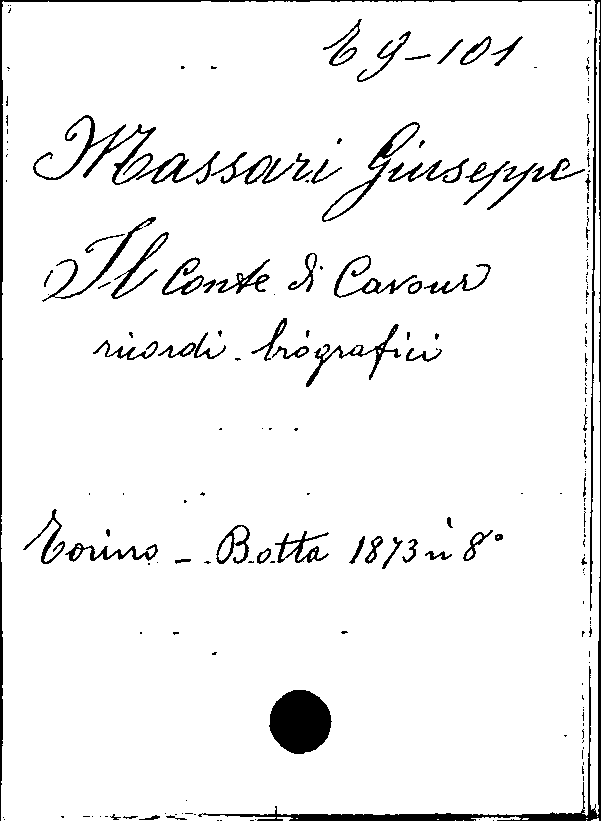 E 9-101
Massari Giuseppe
Il Conte di Cavour
ricordi biografici
Torino - Botta 1873 in 8°